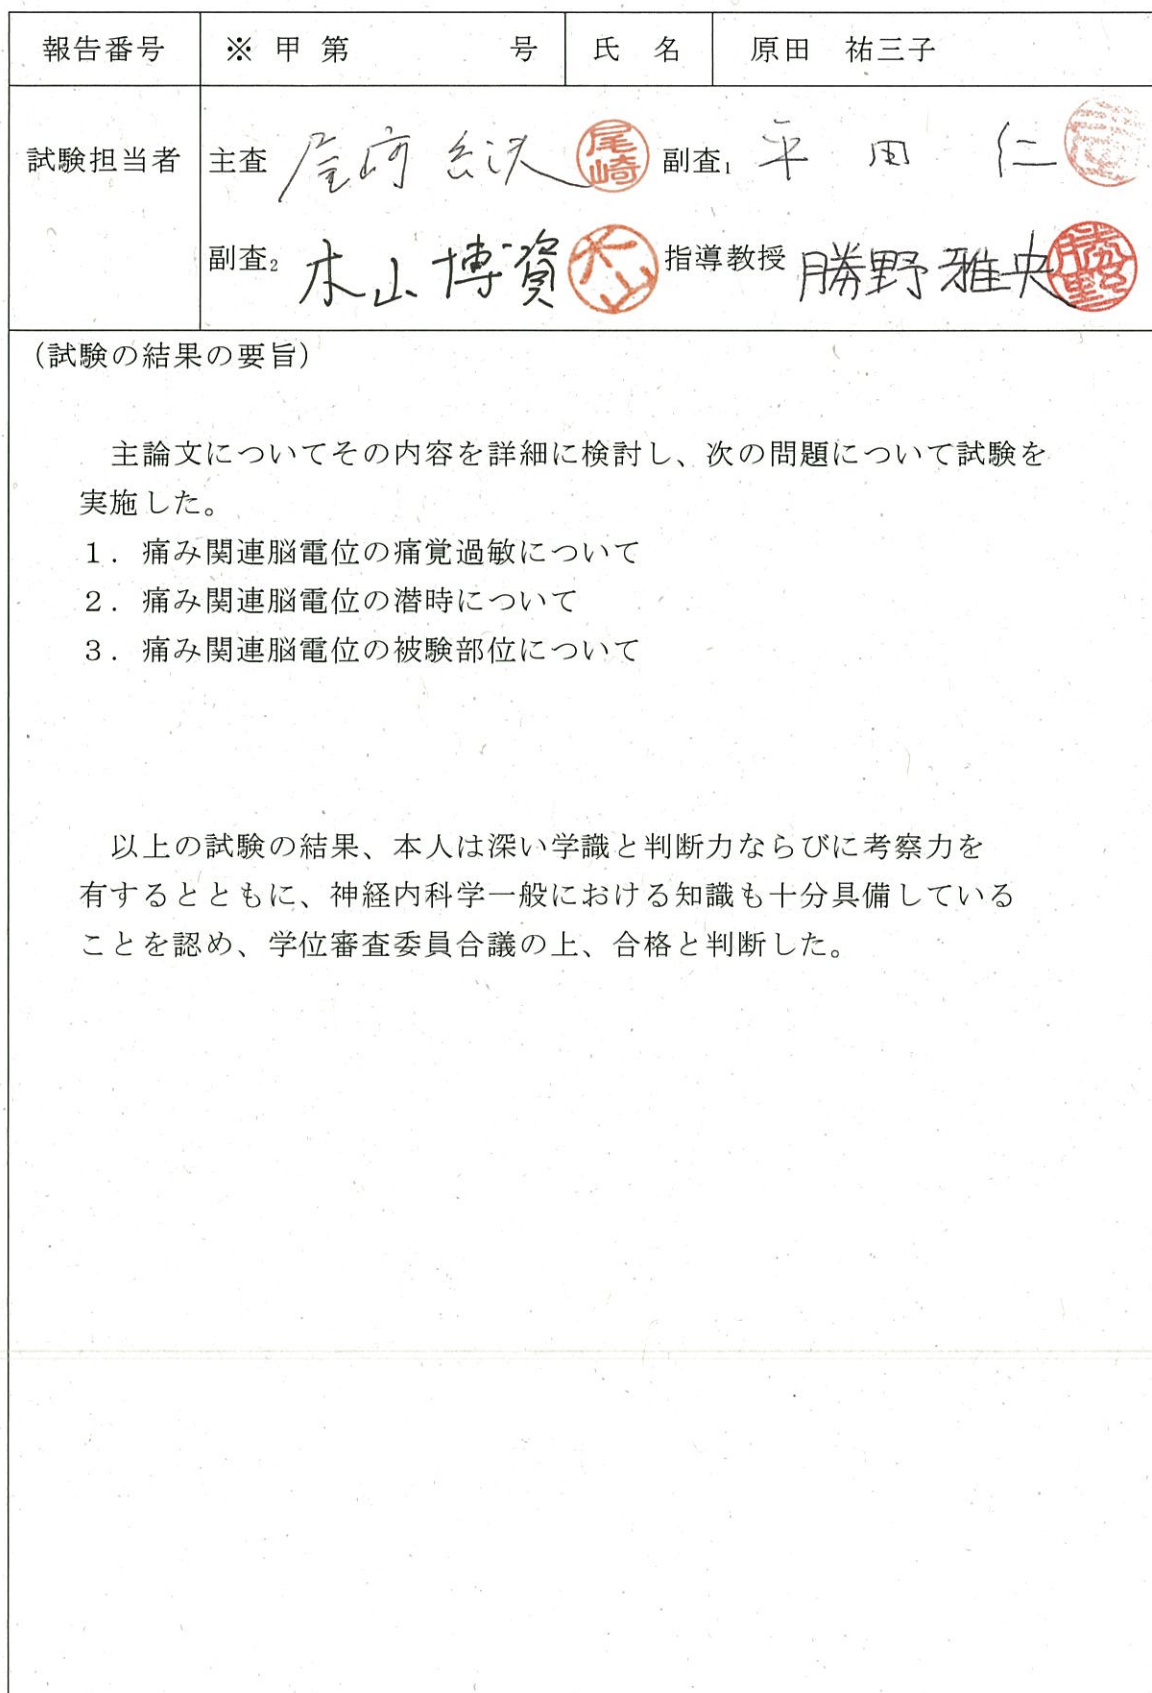 報告番号 ※ 甲 第 号 氏 名 原田 祐三子
試験担当者 主査 尾崎 紀夫 尾崎 副査1 平田 仁
副査2 木山 博資 木山 指導教授 勝野 雅央 勝野
(試験の結果の要旨)
主論文についてその内容を詳細に検討し、次の問題について試験を
実施した。
1. 痛み関連脳電位の痛覚過敏について
2. 痛み関連脳電位の潜時について
3. 痛み関連脳電位の被験部位について
以上の試験の結果、本人は深い学識と判断力ならびに考察力を
有するとともに、神経内科学一般における知識も十分具備している
ことを認め、学位審査委員合議の上、合格と判断した。